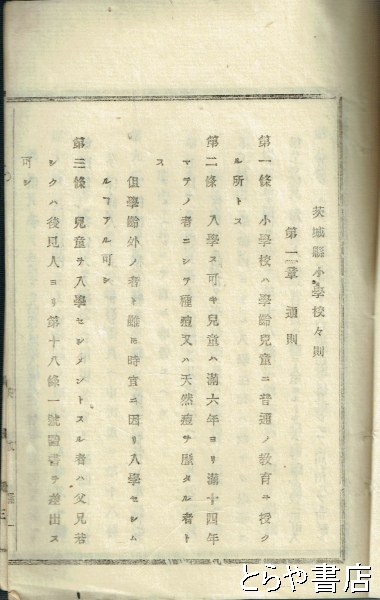 茨城縣小學校々則
第一章 通則
第一條 小學校ハ學齡兒童ニ普通ノ敎育ヲ授ク
ル所トス
第二條 入學ス可キ兒童ハ滿六年ヨリ滿十四年
マテノ者ニシテ種痘又ハ天然痘ヲ歷タル者ト
ス
但學齡外ノ者ト雖モ時宜ニ因リ入學セシム
ルヿアル可シ
第三條 兒童ヲ入學セシメントスル者ハ父兄若
シクハ後見人ヨリ第十八條一號證書ヲ差出ス
可シ
とらや書店